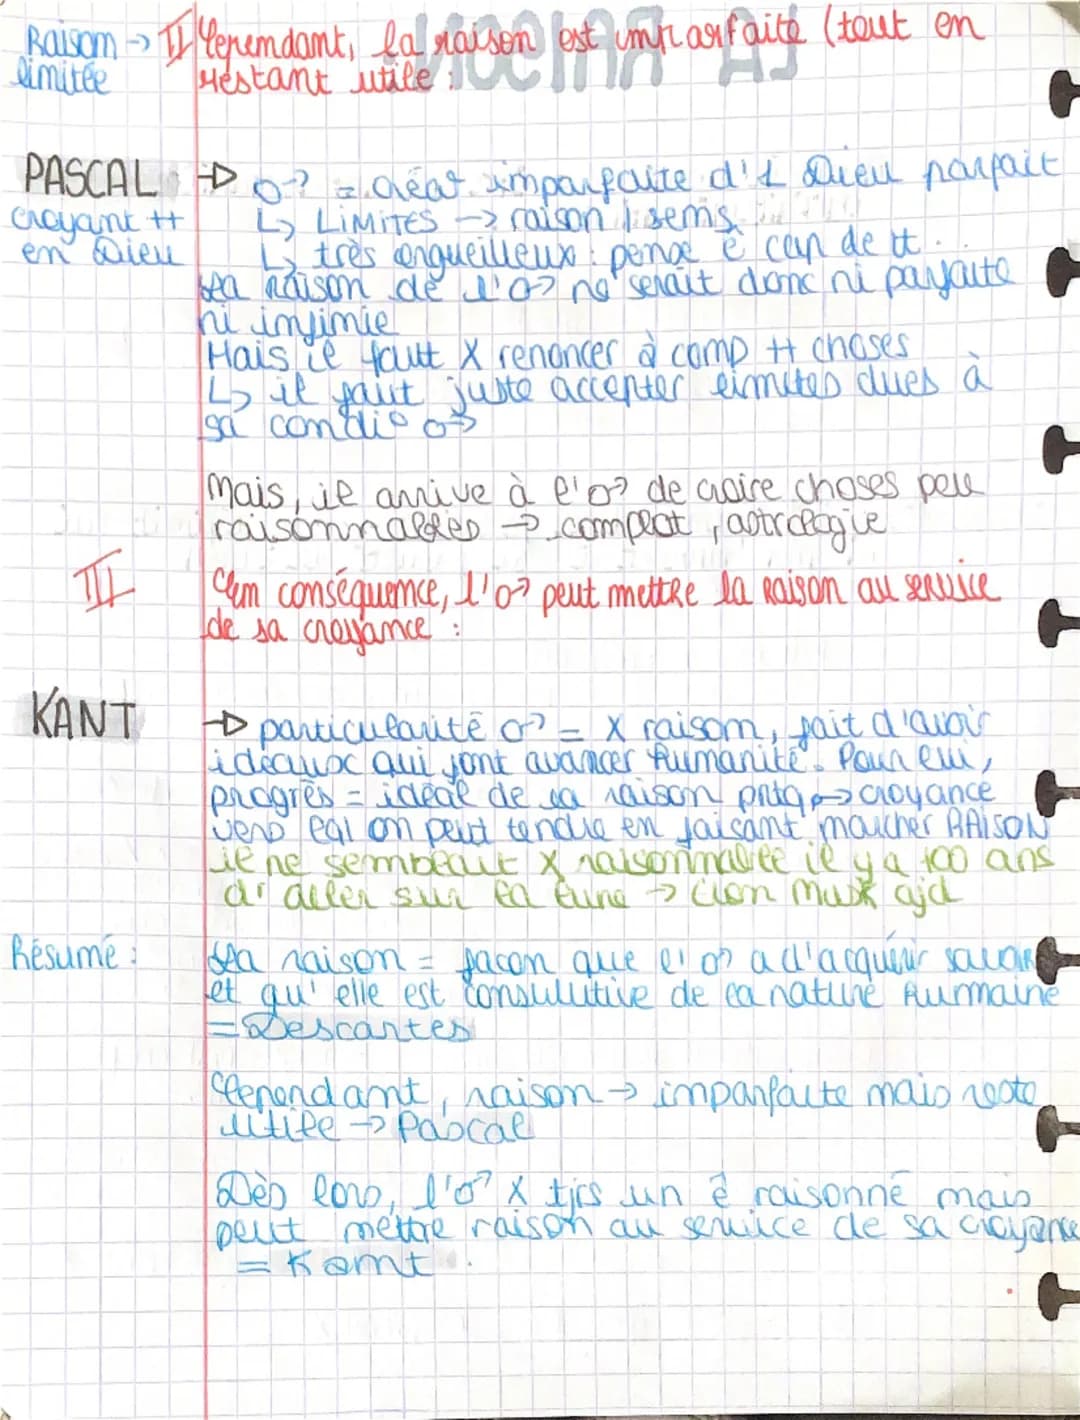 Raison → II Cependant, la raison est imparfaite (tout en
limitée restant utile :
PASCAL → ♂ = créat° imparfaite d'1 Dieu parfait
croyant ++ ↳ LIMITES → raison / sens
en Dieu ↳ très orgueilleux : pense ê cap de tt.
La raison de l'♂ ne serait donc ni parfaite
ni infinie
Mais il faut X renoncer à comp ++ choses
↳ il faut juste accepter limites dues à
sa condi° ♂
Mais, il arrive à l'♂ de croire choses peu
raisonnables → complot, astrologie
III En conséquence, l'♂ peut mettre la raison au service
de sa croyance :
KANT → particularité ♂ = X raison, fait d'avoir
idéaux qui font avancer humanité. Pour lui,
progrès = idéal de la raison pratq → croyance
vers lql on peut tendre en faisant marcher RAISON
il ne semblait X raisonnable il y a 100 ans
d'aller sur la lune → Elon Musk ajd
Résumé : La raison = façon que l'♂ a d'acquérir savoir
et qu'elle est constitutive de la nature humaine
= Descartes
Cependant, raison → imparfaite mais reste
utile → Pascal
Dès lors, l'♂ X tjrs un ê raisonné mais
peut mettre raison au service de sa croyance
= Kant.
LA RAISON